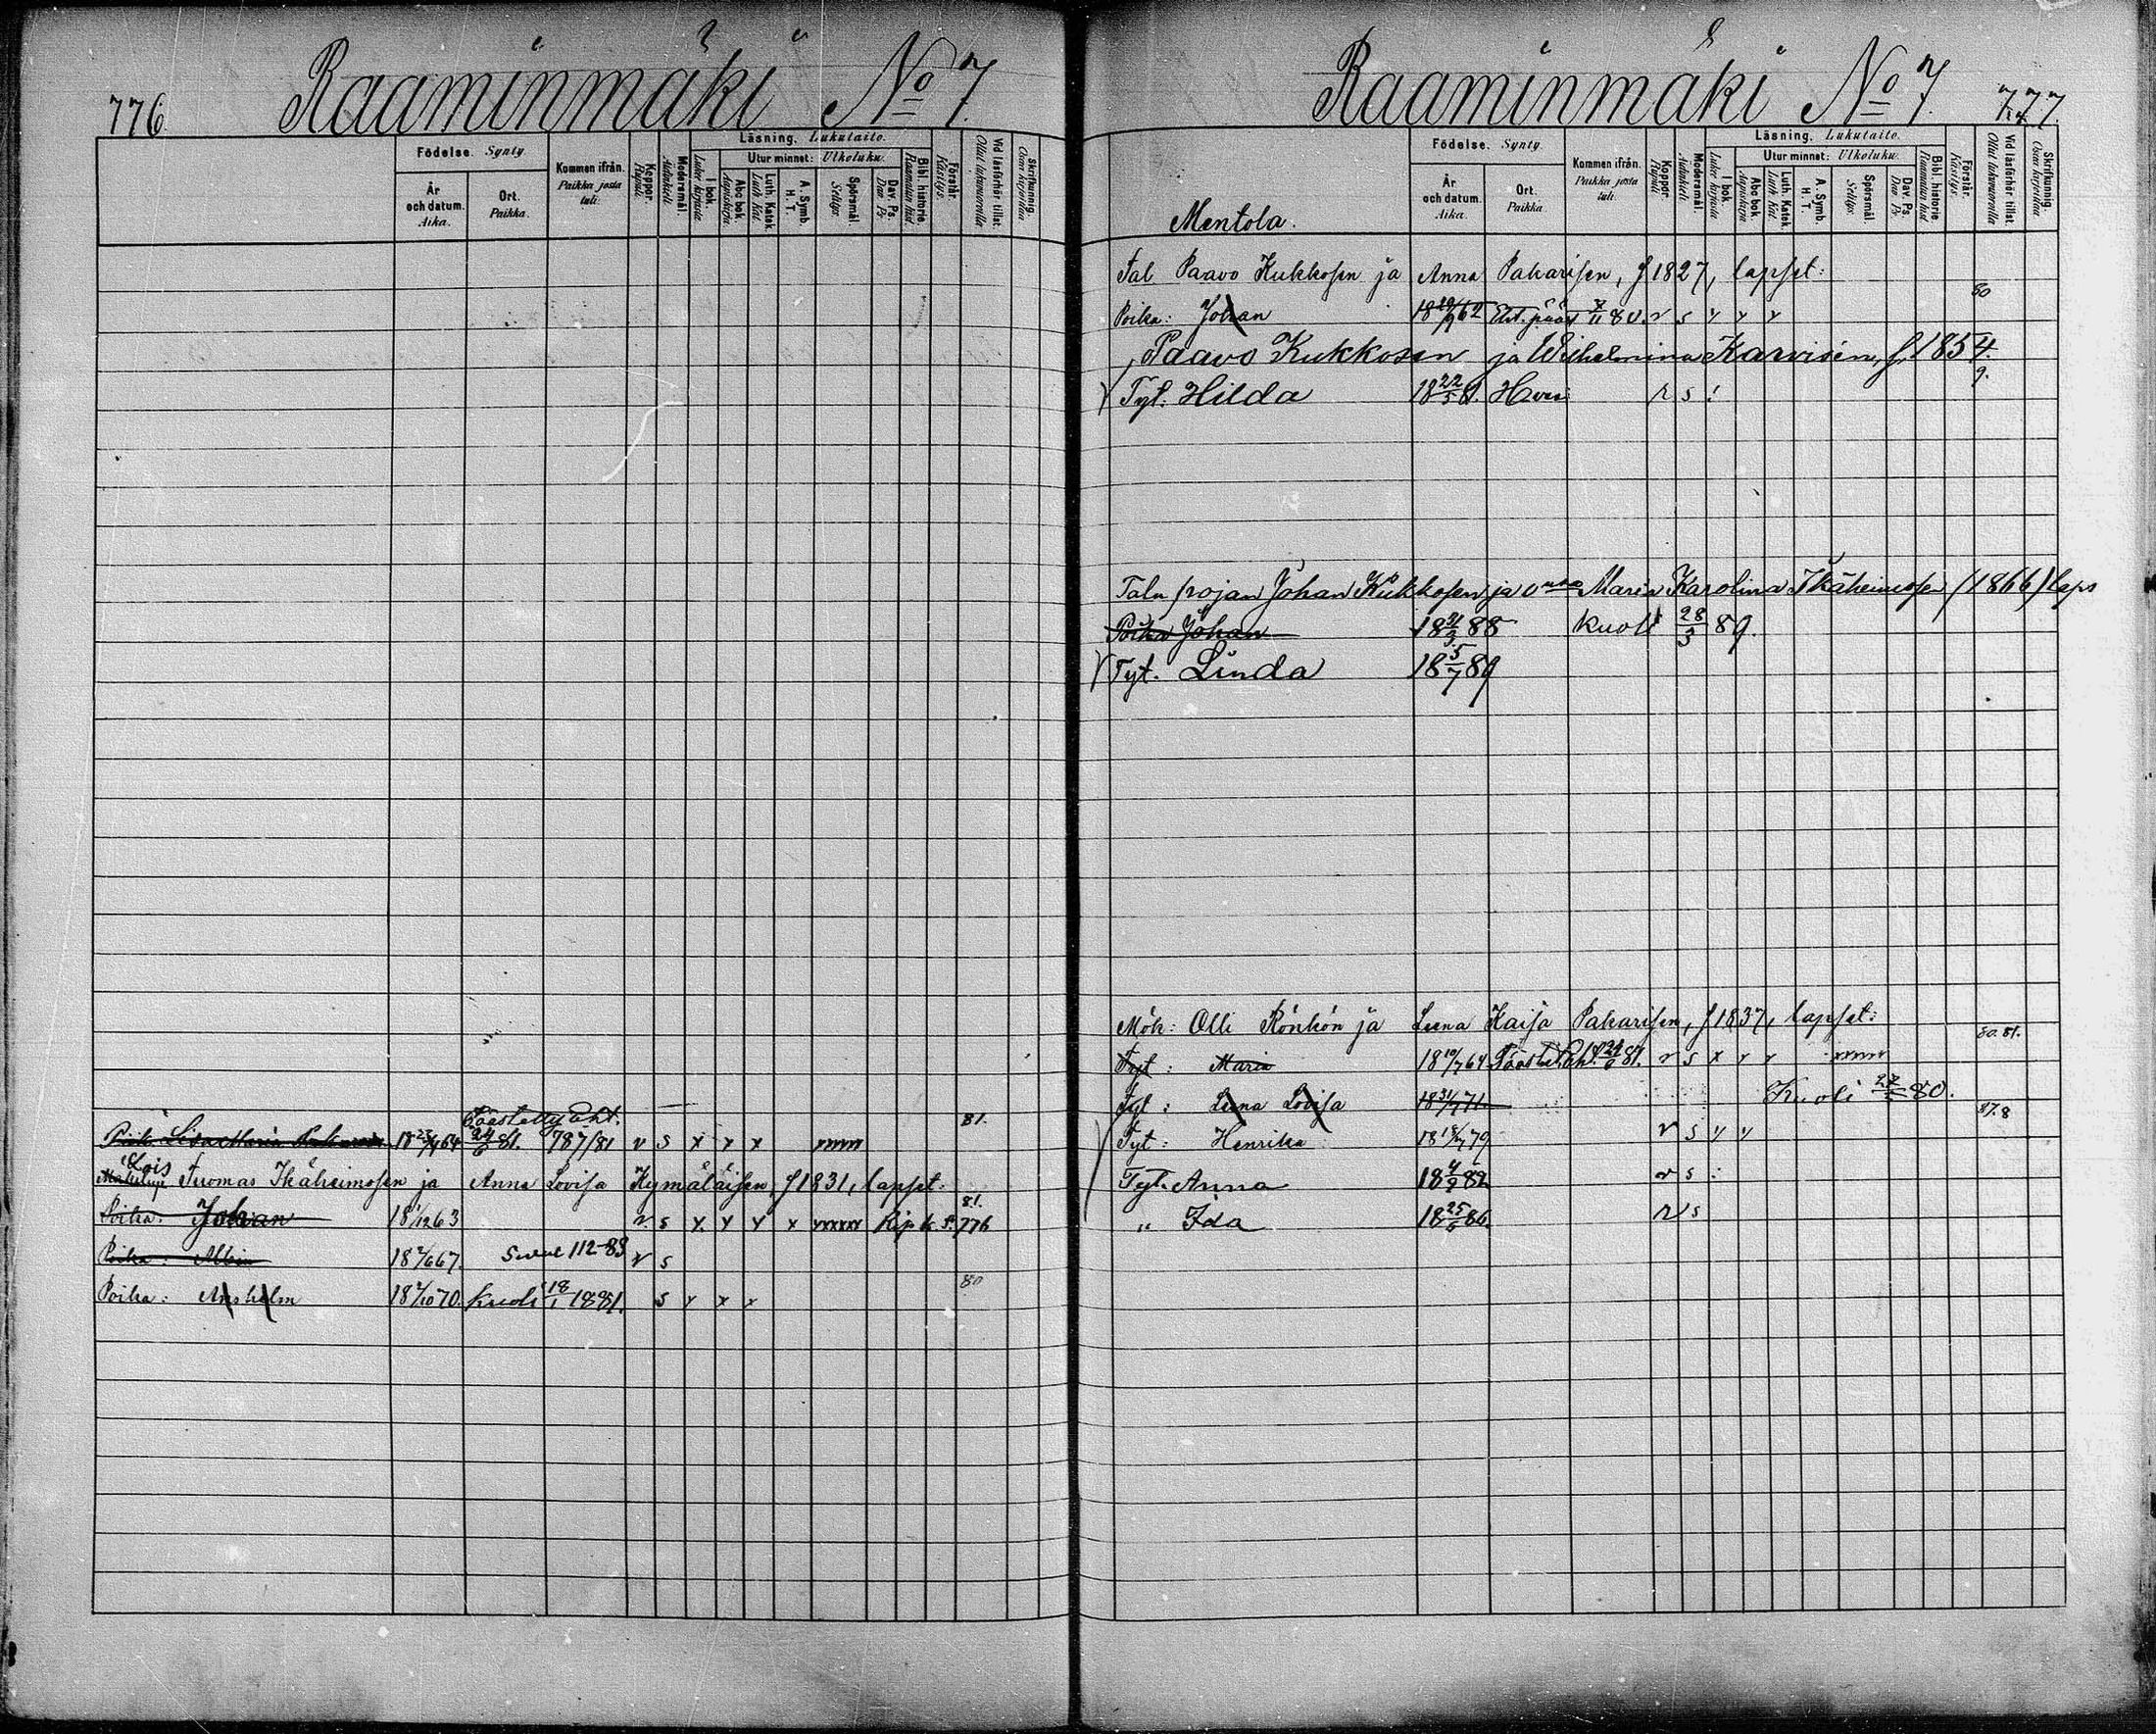 776 Raaminmäki No 7.
Födelse. Synty.
År och datum. Aika.
Ort. Paikka.
Kommen ifrån. Paikka josta tuli.
Koppor. Rupuli
Modersmål. Äidinkieli
Läsning. Lukutaito.
I bok. Lukee kirjasta
Utur minnet: Ulkoluku.
Abc bok. Aapiskirja
Luth. Katek. Luth. Kat.
A. Symb. H. T.
Spörsmål. Selitys.
Dav. Ps. Dav. Ps.
Bibl. historie Raamatun hist.
Förstår. Käsitys.
Vid läsförhör tillst. Ollut lukuvuorolla
Skrifkunnig. Osaa kirjoittaa
Töästetty Eht. 81.
Piik. Lisa Maria Pakarin 18 64 24/6 81. 787/81 v s x x x
Lois
Tuomas Ikäheimosen ja Anna Lovisa Kymäläisen, f 1831, lapset:
81.
Poika: Johan 18 1/12 63 v. s x x x x xxxxxx Rip. k. s. 776
Poika: Albin 18 7/6 67. 112-83 v s
80
Poika: Anshelm 18 7/10 70. kuoli 18/1 1881. s x x x
Raaminmäki No 7. 777.
Födelse. Synty.
År och datum. Aika.
Ort. Paikka.
Kommen ifrån. Paikka josta tuli.
Koppor. Rupuli
Modersmål. Äidinkieli
Läsning. Lukutaito.
I bok. Lukee kirjasta
Utur minnet: Ulkoluku.
Abc bok. Aapiskirja
Luth. Katek. Luth. Kat.
A. Symb. H. T.
Spörsmål. Selitys.
Dav. Ps. Dav. Ps.
Bibl. historie Raamatun hist.
Förstår. Käsitys.
Vid läsförhör tillst. Ollut lukuvuorolla
Skrifkunnig. Osaa kirjoittaa
Mentola.
Tal Paavo Kukkosen ja Anna Pakarisen, f 1827, lapset:
80
Poika: Johan 18 62 Eht. pääst 80. v s x x x
Paavo Kukkosen ja Wilhelmina Karvisen, f. 1854.
9.
Tyt: Hilda 18 22/5 81. r s !
Talu pojan Johan Kukkosen ja Maria Karolina Ikäheimosen (1866) laps
Poika Johan 18 88 kuoli 28/3 89.
Tyt. Linda 18 5/7 89
Mök: Olli Rönkön ja Leena Kaisa Pakarisen, f 1837, lapset:
80. 81.
Tyt: Maria 18 10/7 64 81. v s x x x
Tyt: Leena Lovisa 18 31/7 71 Kuoli 80.
87. 8
Tyt: Henrika 18 79 v s x x
Tyt. Anna 18 4/9 82 v s :
" Ida 18 25/5 86. r s